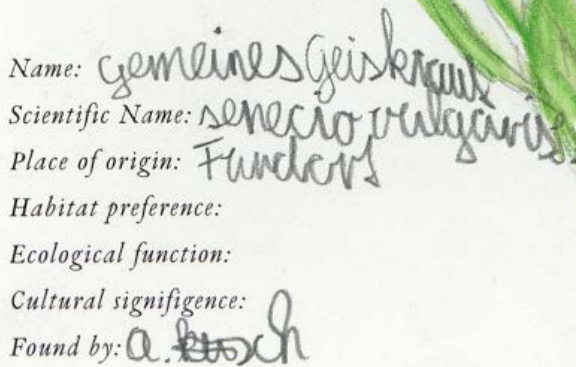 Name: Gemeines Geiskraut
Scientific Name: senecio vulgaris
Place of origin: Fundort
Habitat preference:
Ecological function:
Cultural signifigence:
Found by: a.